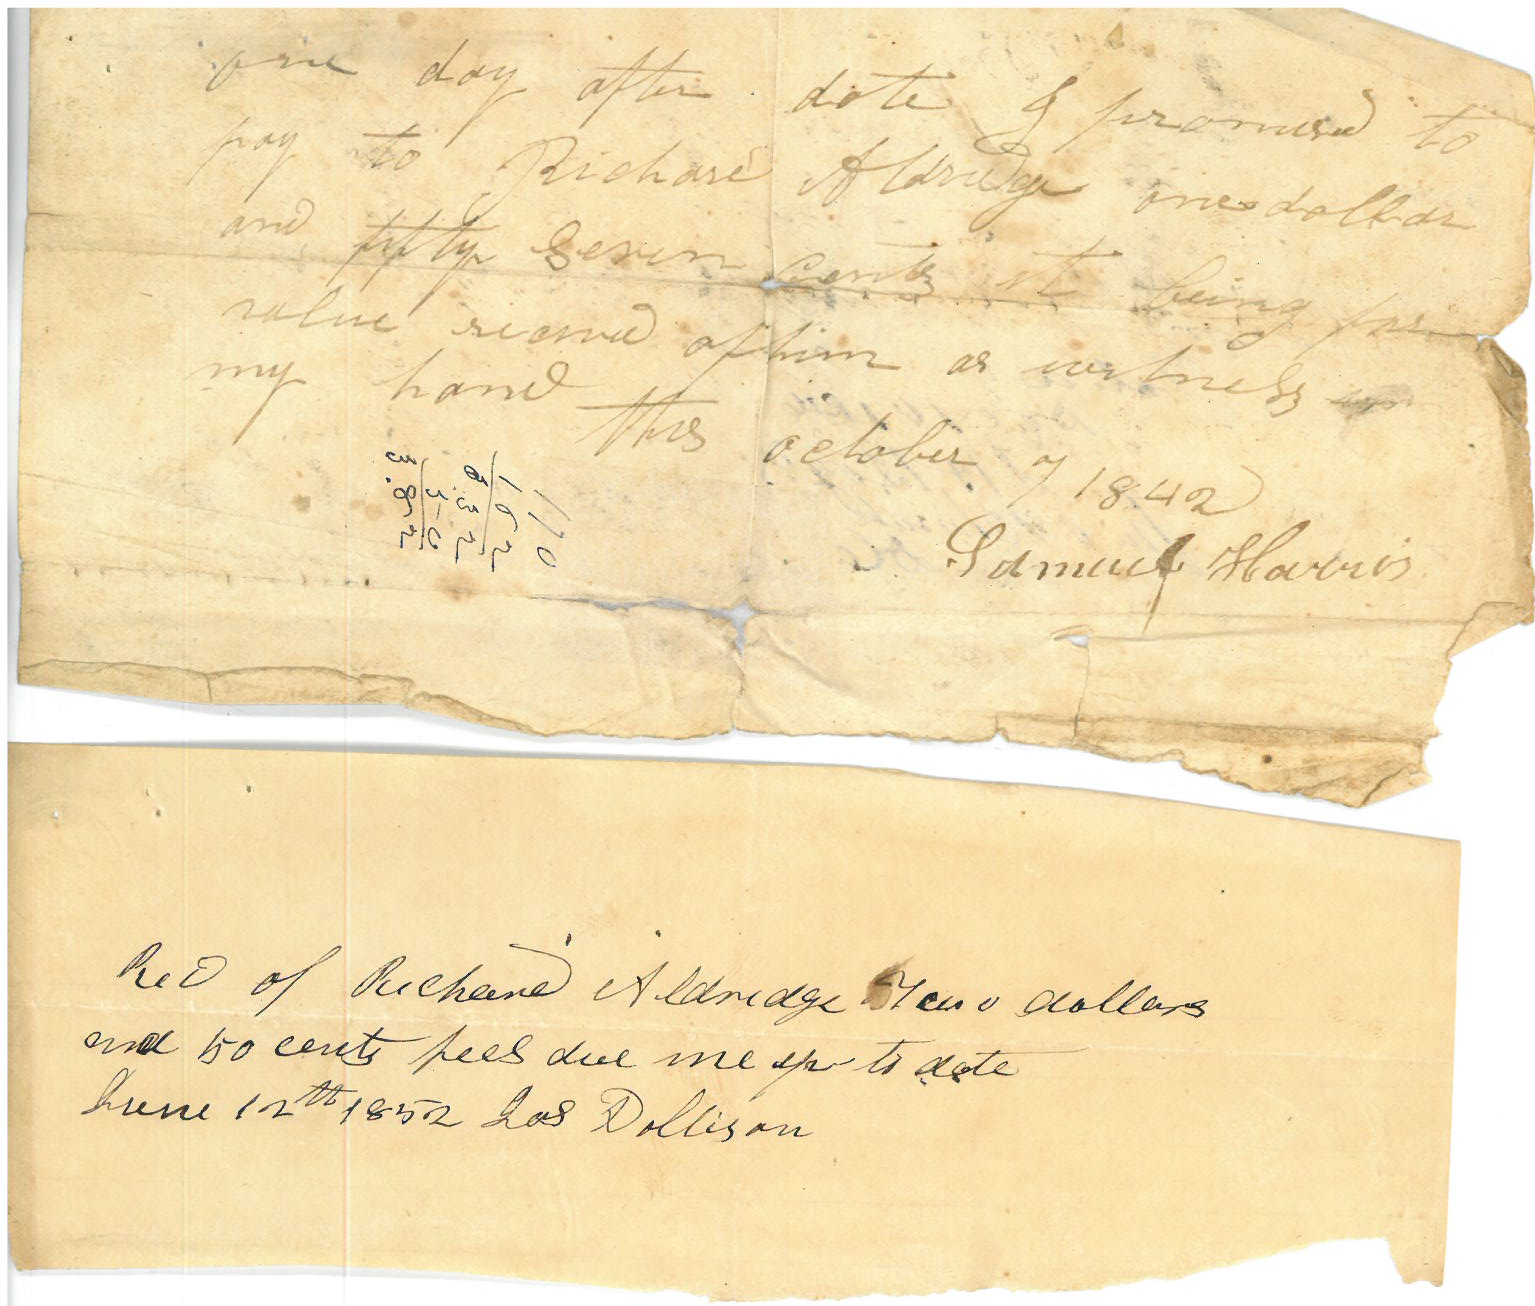 one day after date I promised to
pay to Richard Aldridge one dollar
and fifty Seven cents it being for
value received of him as witness
my hand this october 7 1842
Samuel Harris
Recd of Richard Aldridge Two dollars
and 50 cents fees due me up to date
June 12th 1852 Jas Dollison